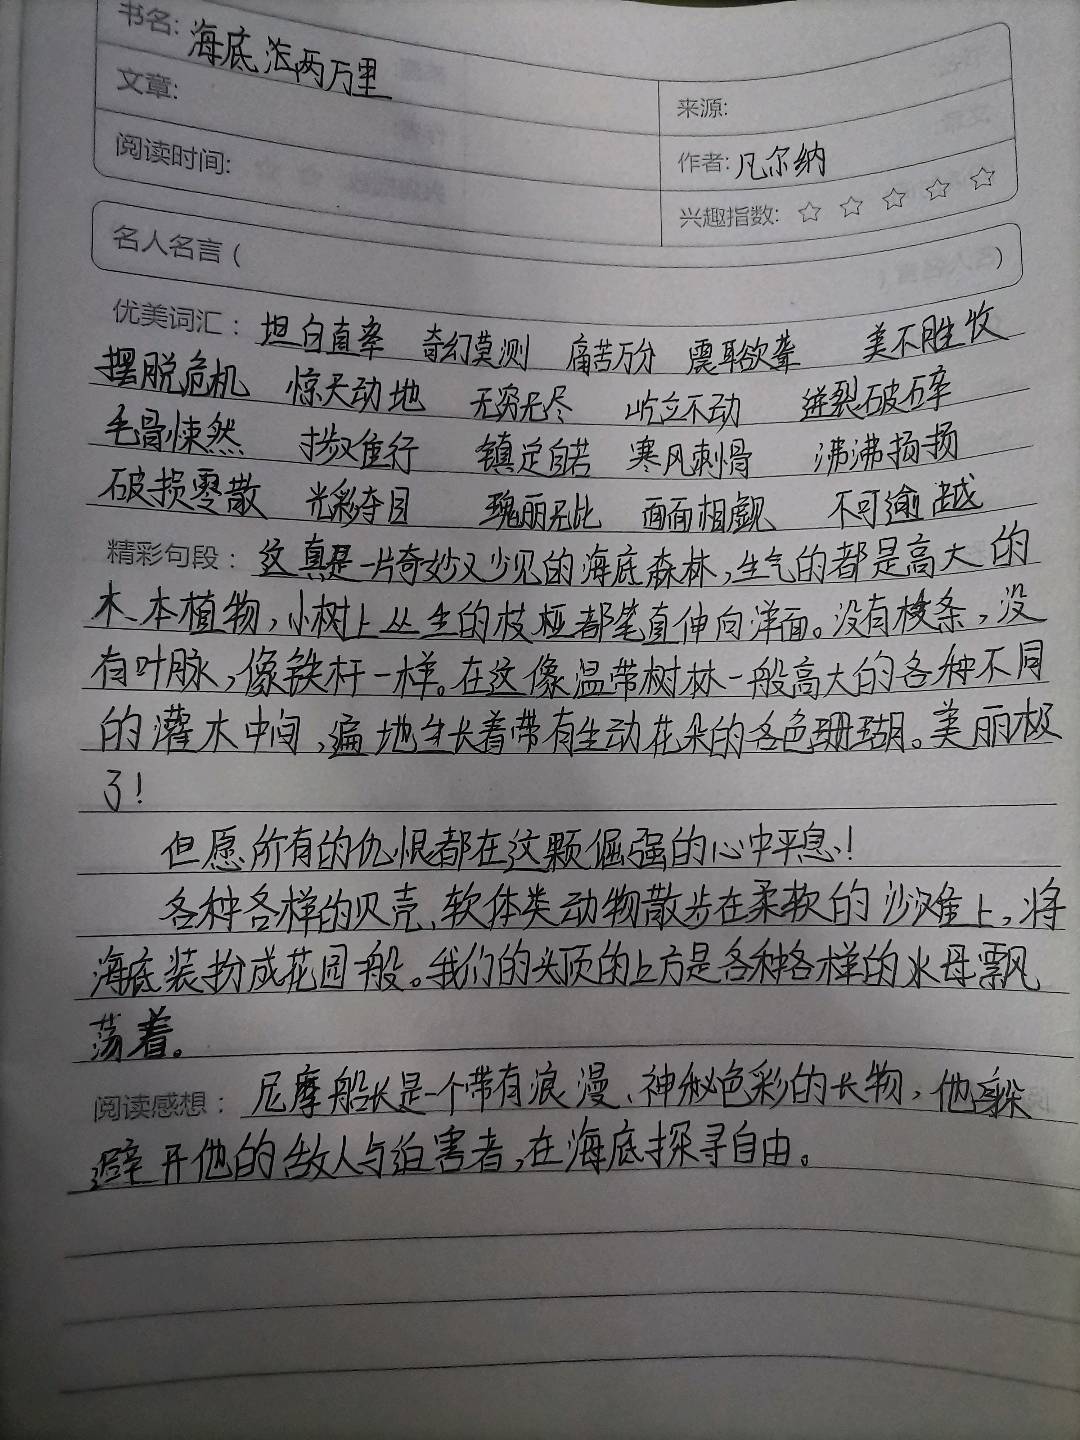 书名: 海底两万里
文章:
来源:
阅读时间:
作者: 凡尔纳
兴趣指数: ☆ ☆ ☆ ☆ ☆
名人名言 ( )
优美词汇: 坦白直率 奇幻莫测 痛苦万分 震耳欲聋 美不胜收
摆脱危机 惊天动地 无穷无尽 屹立不动 迸裂破碎
毛骨悚然 步难行 镇定自若 寒风刺骨 沸沸扬扬
破损零散 光彩夺目 瑰丽无比 面面相觑 不可逾越
精彩句段: 这真是一片奇妙又少见的海底森林,生气的都是高大的
木本植物,小树上丛生的枝桠都笔直伸向洋面。没有枝条,没
有叶脉,像铁杆一样。在这像温带树林一般高大的各种不同
的灌木中间,遍地生长着带有生动花朵的各色珊瑚。美丽极
了!
但愿所有的仇恨都在这颗倔强的心中平息!
各种各样的贝壳、软体类动物散步在柔软的沙滩上,将
海底装扮成花园般。我们的头顶的上方是各种各样的水母飘
荡着。
阅读感想: 尼摩船长是一个带有浪漫、神秘色彩的长物,他躲
避开他的敌人与迫害者,在海底探寻自由。